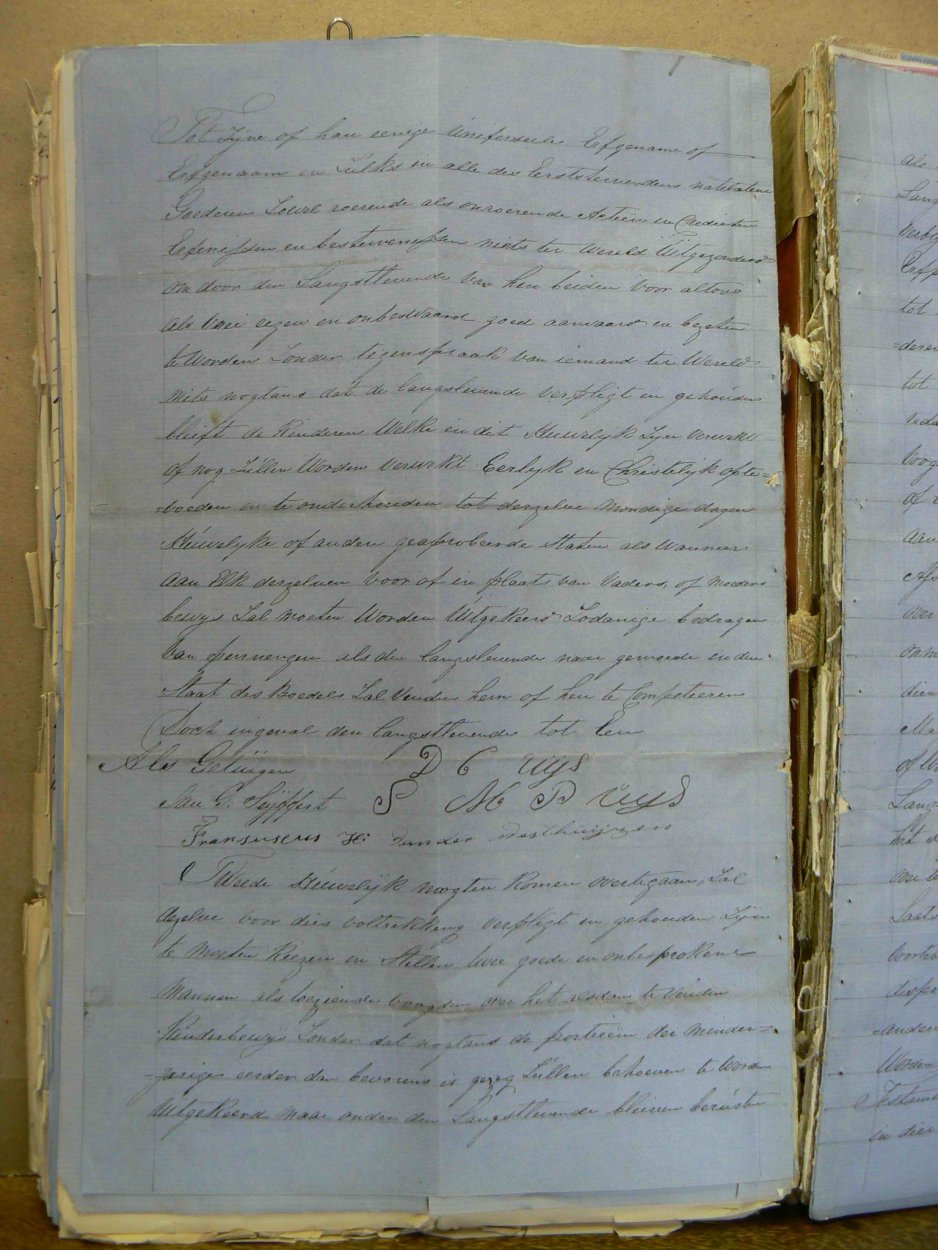 Tot Zijne of haar eenige Universeele Erfgename of
Erfgenaam en Zulks in alle des Eerststervendens natelatene
Goederen Zowel roerende als onroerende Actien en Credieten
Erfenissen en bestervenissen niets ter Wereld Uitgezonderd
om door den Langstlevende van hen beiden voor altoos
als vrei eigen en onbezwaard goed aanvaard en bezeten
te Worden Zonder tegenspraak van iemand ter Wereld
mits nogtans dat de langslevende verpligt en gehouden
bleift de Kinderen Welke in dit Huwelijk Zyn verwekt
of nog Zullen Worden verwekt Eerlyk en Christelijk opte=
=voeden en te onderhouden tot derzelve mondige dagen
Huwelyke of anden geaprobeerde Staten als Wanneer
aan Elk derzelven voor of in plaats van Vaders of moeders
bewys Zal moeten Worden Uitgekeerd Zodanige bedragen
van penningen als den langslevende naar gemoede en den
Staat des Boedels Zal Vinden hem of hen te Competeeren
Doch ingeval den langstlevende tot Een
Als Getuigen
D C Uys
Jan G.
S M P Uys
Fransuscus H: van der Westhuijzen
Tweede Huwelijk mogten Komen overtegaan, Zal
dezelve voor dies voltrekking verpligt en gehouden Zyn
te moeten Kiezen en Stellen twee goede en onbesprokene
mannen als toeziende voogden over het alsdan te vinden
Kinderbewys Zonder dat nogtans de portieën der minder=
=jarige eerder dan bevorens is gezeg Zullen behoeven te Worden
Uitgekeerd maar onder den Langstlevende bleiven berusten
als
Lang
tot
=deren
tot
voog
of
aan
over
onm
dien
Ma
of W
Lang
het
over te
Laats
disp
=ander
Worden
Testame
in dier